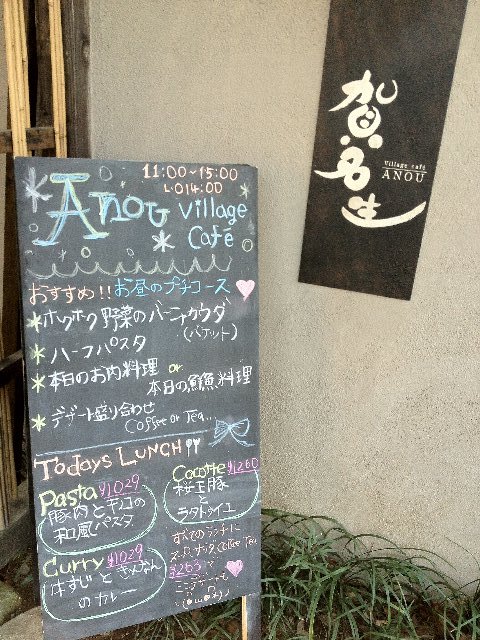 11:00~15:00
L.O 14:00
Anou Village
Café
おすすめ!! お昼のプチコース
*ホクホク野菜のバーニャカウダ
(バケット)
*ハーフパスタ
*本日のお肉料理 or
本日の鮮魚料理
*デザート盛り合わせ
Coffee or Tea...
Todays LUNCH
Pasta ¥1029
豚肉とキノコの
和風パスタ
Cocotte ¥1260
桜王豚
と
ラタトゥイユ
Curry ¥1029
牛すじと
のカレー
すべてのランチに
スープ,サラダ,Coffee Tea
¥263で
賀名生
Village café
ANOU